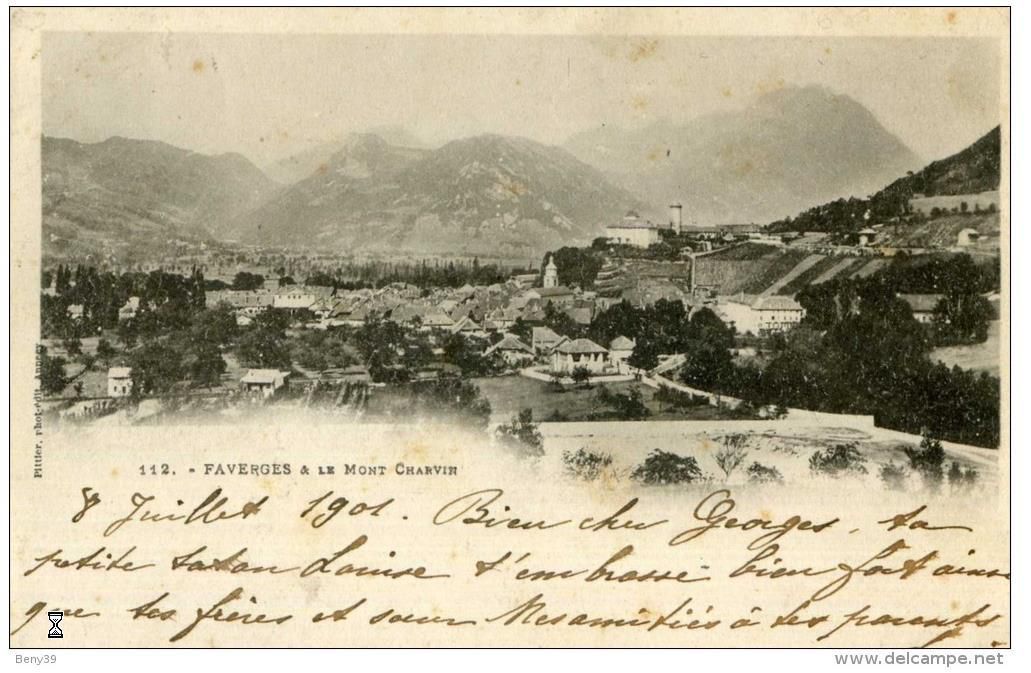 Pittier, phot-édit. Annecy
112. - FAVERGES & LE MONT CHARVIN
8 Juillet 1901. Bien cher Georges, ta
petite tatan Louise t'embrasse bien fort ainsi
que tes frères et sœur Mes amitiés à tes parents.
Beny39
www.delcampe.net